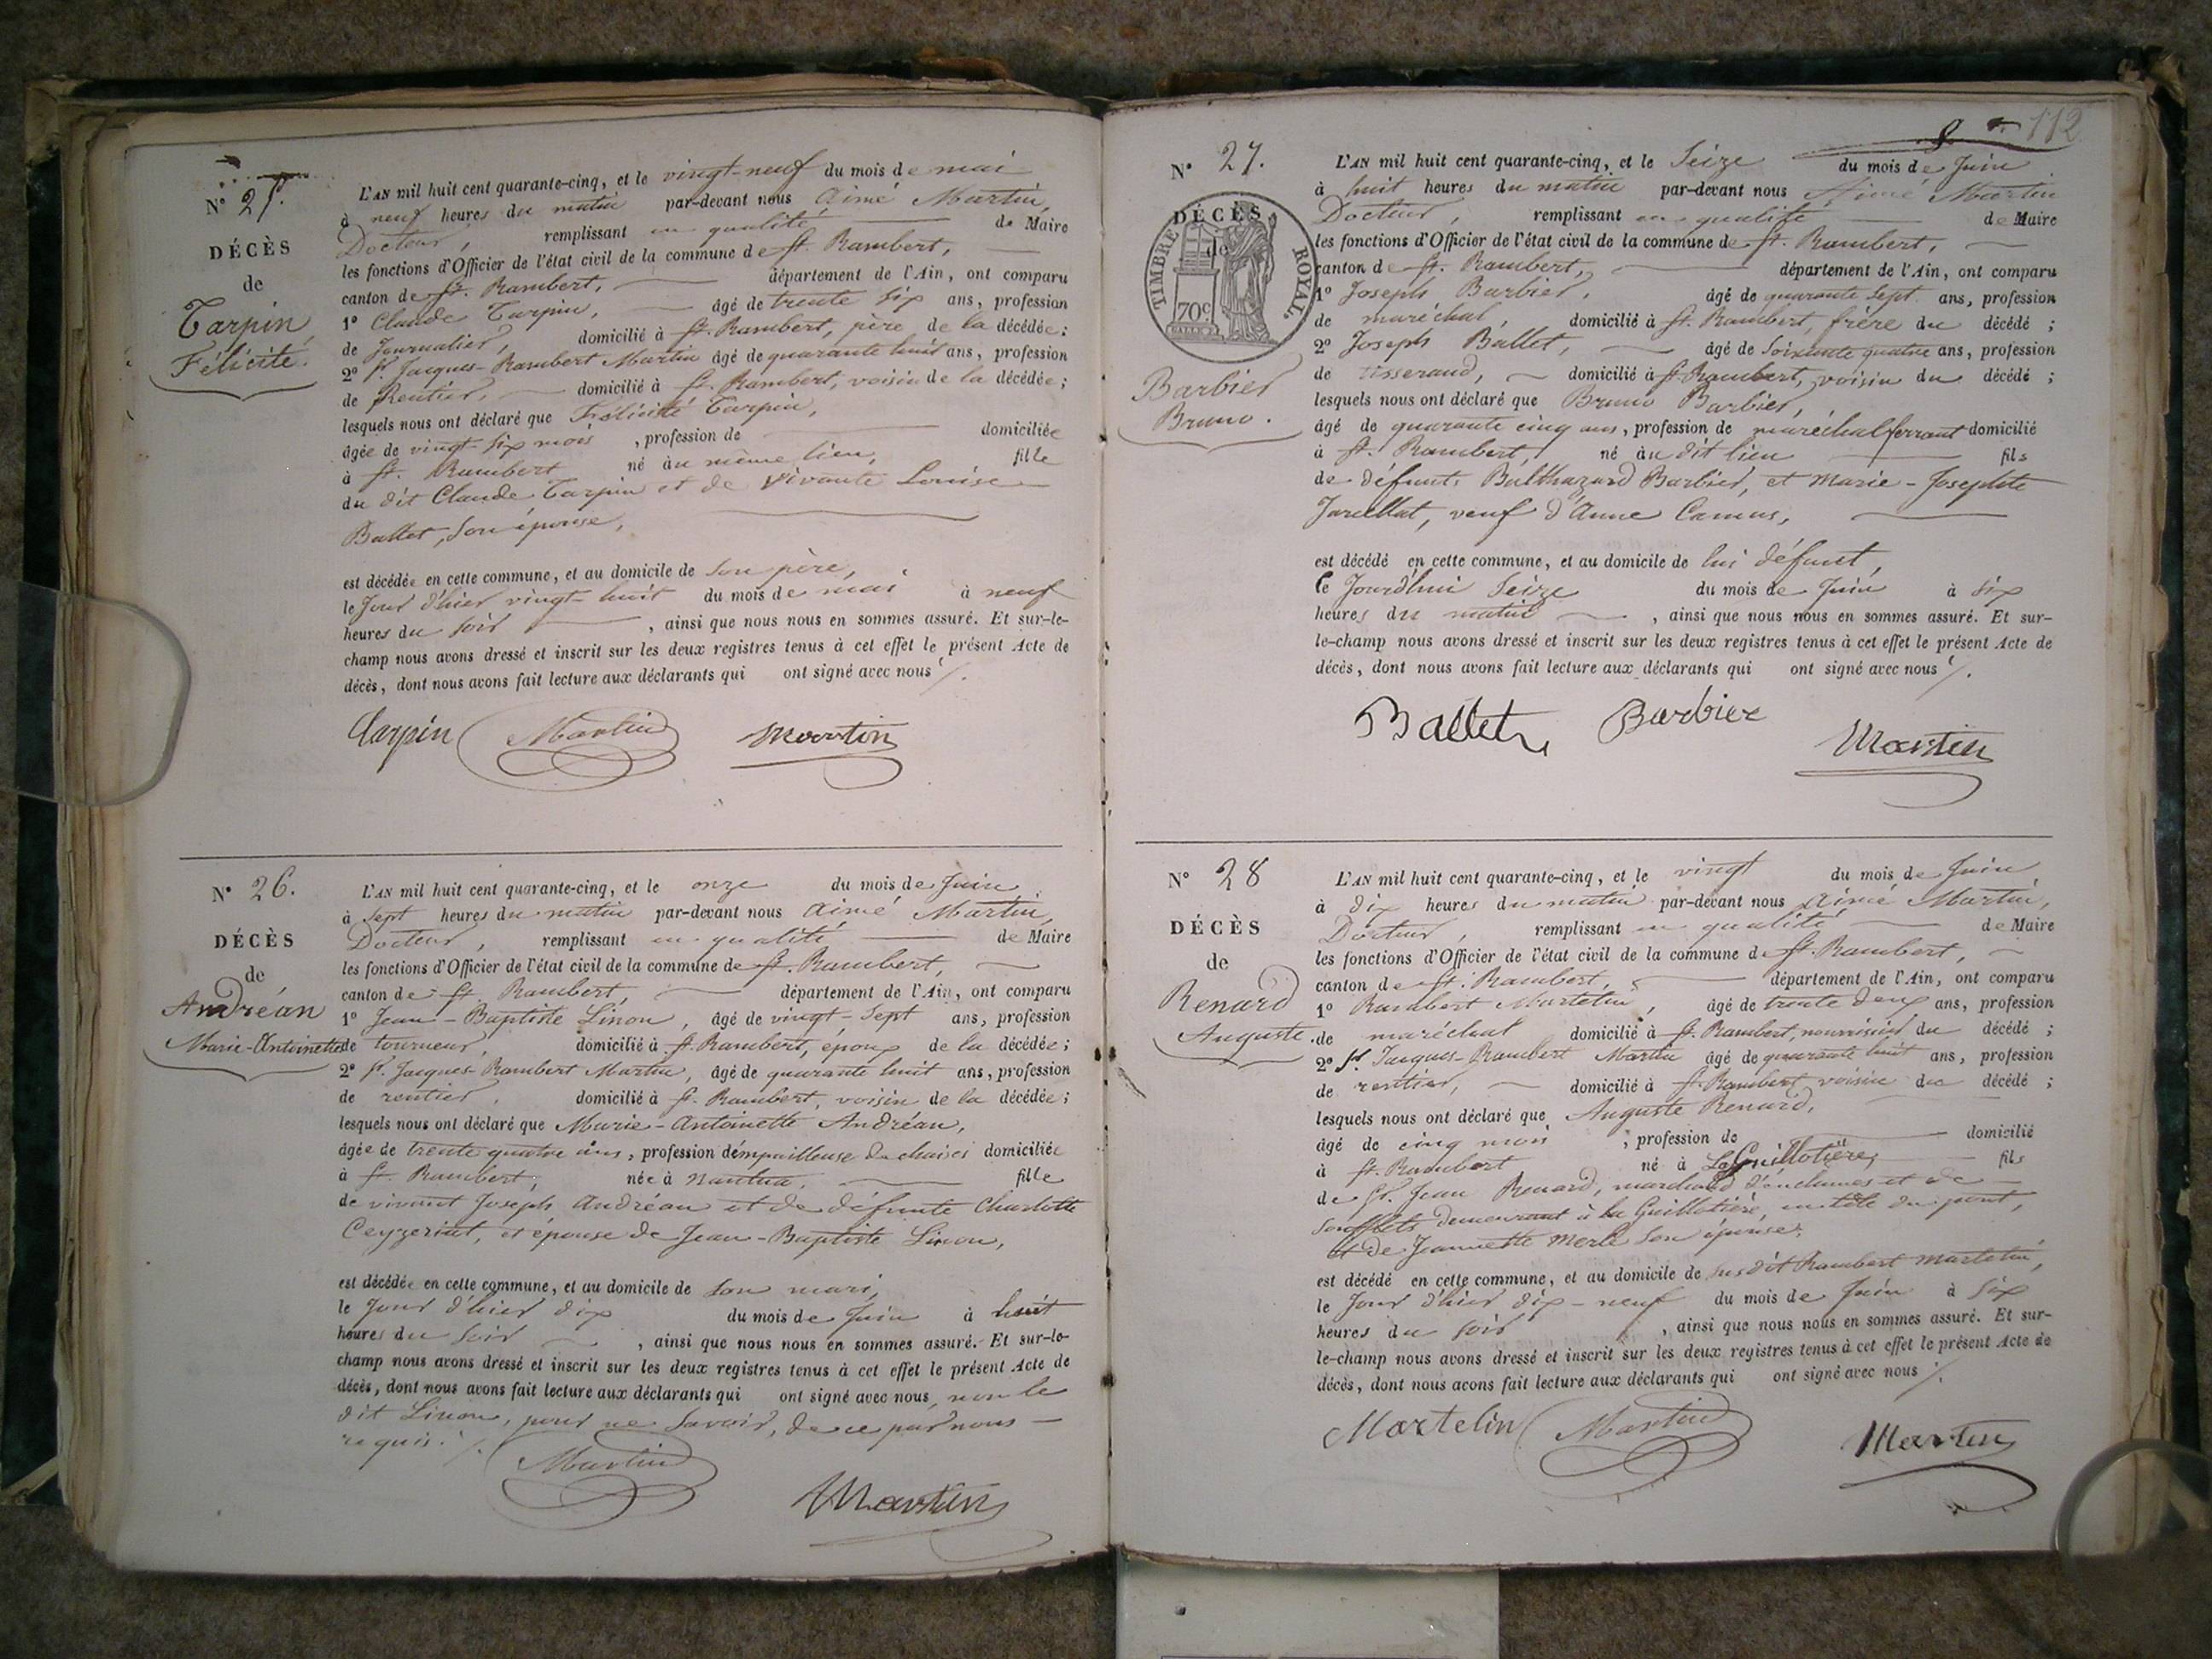 N° 25.
DÉCÈS
de
Tarpin
Félicité.
L'AN mil huit cent quarante-cinq, et le vingt-neuf du mois de mai
à neuf heures du matin par-devant nous Aimé Martin,
Docteur, remplissant en qualité de Maire
les fonctions d'Officier de l'état civil de la commune de St. Rambert,
canton de St. Rambert, département de l'Ain, ont comparu
1° Claude Tarpin, âgé de trente six ans, profession
de Journalier, domicilié à St. Rambert, père de la décédée;
2° Sr. Jacques-Rambert Martin âgé de quarante huit ans, profession
de Rentier, domicilié à St. Rambert, voisin de la décédée;
lesquels nous ont déclaré que Félicité Tarpin,
âgée de vingt-six mois, profession de domiciliée
à St. Rambert né au même lieu, fille
du dit Claude Tarpin et de vivante Louise
Ballet, son épouse,
est décédée en cette commune, et au domicile de son père,
le Jour d'hier vingt-huit du mois de mai à neuf
heures du soir, ainsi que nous nous en sommes assuré. Et sur-le-
champ nous avons dressé et inscrit sur les deux registres tenus à cet effet le présent Acte de
décès, dont nous avons fait lecture aux déclarants qui ont signé avec nous
Tarpin Martin Martin
N° 26.
DÉCÈS
de
Andréan
Marie-Antoinette
L'AN mil huit cent quarante-cinq, et le onze du mois de Juin
à sept heures du matin par-devant nous Aimé Martin,
Docteur, remplissant en qualité de Maire
les fonctions d'Officier de l'état civil de la commune de St. Rambert,
canton de St. Rambert département de l'Ain, ont comparu
1° Jean-Baptiste Linon, âgé de vingt-sept ans, profession
de tourneur, domicilié à St. Rambert, époux de la décédée;
2° Sr. Jacques-Rambert Martin, âgé de quarante huit ans, profession
de rentier, domicilié à St. Rambert, voisin de la décédée;
lesquels nous ont déclaré que Marie-Antoinette Andréan,
âgée de trente quatre ans, profession d'empailleuse de chaises domiciliée
à St. Rambert, née à Nantua, fille
de vivant Joseph Andréan et de défunte Charlotte
Ceyzeriat, et épouse de Jean-Baptiste Linon,
est décédée en cette commune, et au domicile de son mari,
le Jour d'hier dix du mois de Juin à huit
heures du soir, ainsi que nous nous en sommes assuré. Et sur-le-
champ nous avons dressé et inscrit sur les deux registres tenus à cet effet le présent Acte de
décès, dont nous avons fait lecture aux déclarants qui ont signé avec nous, non le
dit Linon, pour ne savoir, de ce par nous
requis.
Martin Martin
112
N° 27.
DÉCÈS
de
TIMBRE ROYAL
70c
Barbier
Bruno.
L'AN mil huit cent quarante-cinq, et le Seize du mois de Juin
à huit heures du matin par-devant nous Aimé Martin
Docteur, remplissant en qualité de Maire
les fonctions d'Officier de l'état civil de la commune de St. Rambert,
canton de St. Rambert, département de l'Ain, ont comparu
1° Joseph Barbier, âgé de quarante sept ans, profession
de maréchal, domicilié à St. Rambert, frère du décédé;
2° Joseph Ballet, âgé de soixante quatre ans, profession
de tisserand, domicilié à St. Rambert, voisin du décédé;
lesquels nous ont déclaré que Bruno Barbier,
âgé de quarante cinq ans, profession de maréchal ferrant domicilié
à St. Rambert, né au dit lieu fils
de défunts Balthazard Barbier, et Marie-Josephte
Jarellat, veuf d'Anne Camus,
est décédé en cette commune, et au domicile de lui défunt,
le Jourd'hui Seize du mois de Juin à six
heures du matin, ainsi que nous nous en sommes assuré. Et sur-
le-champ nous avons dressé et inscrit sur les deux registres tenus à cet effet le présent Acte de
décès, dont nous avons fait lecture aux déclarants qui ont signé avec nous
Ballet Barbier
Martin
N° 28
DÉCÈS
de
Renard
Auguste.
L'AN mil huit cent quarante-cinq, et le vingt du mois de Juin
à dix heures du matin par-devant nous Aimé Martin,
Docteur, remplissant en qualité de Maire
les fonctions d'Officier de l'état civil de la commune de St. Rambert,
canton de St. Rambert, département de l'Ain, ont comparu
1° Rambert Martelin, âgé de trente deux ans, profession
de maréchal domicilié à St. Rambert, nourricier du décédé;
2° Sr. Jacques-Rambert Martin âgé de quarante huit ans, profession
de rentier, domicilié à St. Rambert voisin du décédé;
lesquels nous ont déclaré que Auguste Renard,
âgé de cinq mois, profession de domicilié
à St. Rambert né à La Guillotière, fils
de Sr. Jean Renard, marchand d'enclumes et de
soufflets demeurant à la Guillotière, en tête du pont,
et de Jeannette Merle son épouse.
est décédé en cette commune, et au domicile de susdit Rambert Martelin,
le Jour d'hier dix-neuf du mois de Juin à six
heures du soir, ainsi que nous nous en sommes assuré. Et sur-
le-champ nous avons dressé et inscrit sur les deux registres tenus à cet effet le présent Acte de
décès, dont nous avons fait lecture aux déclarants qui ont signé avec nous
Martelin Martin Martin